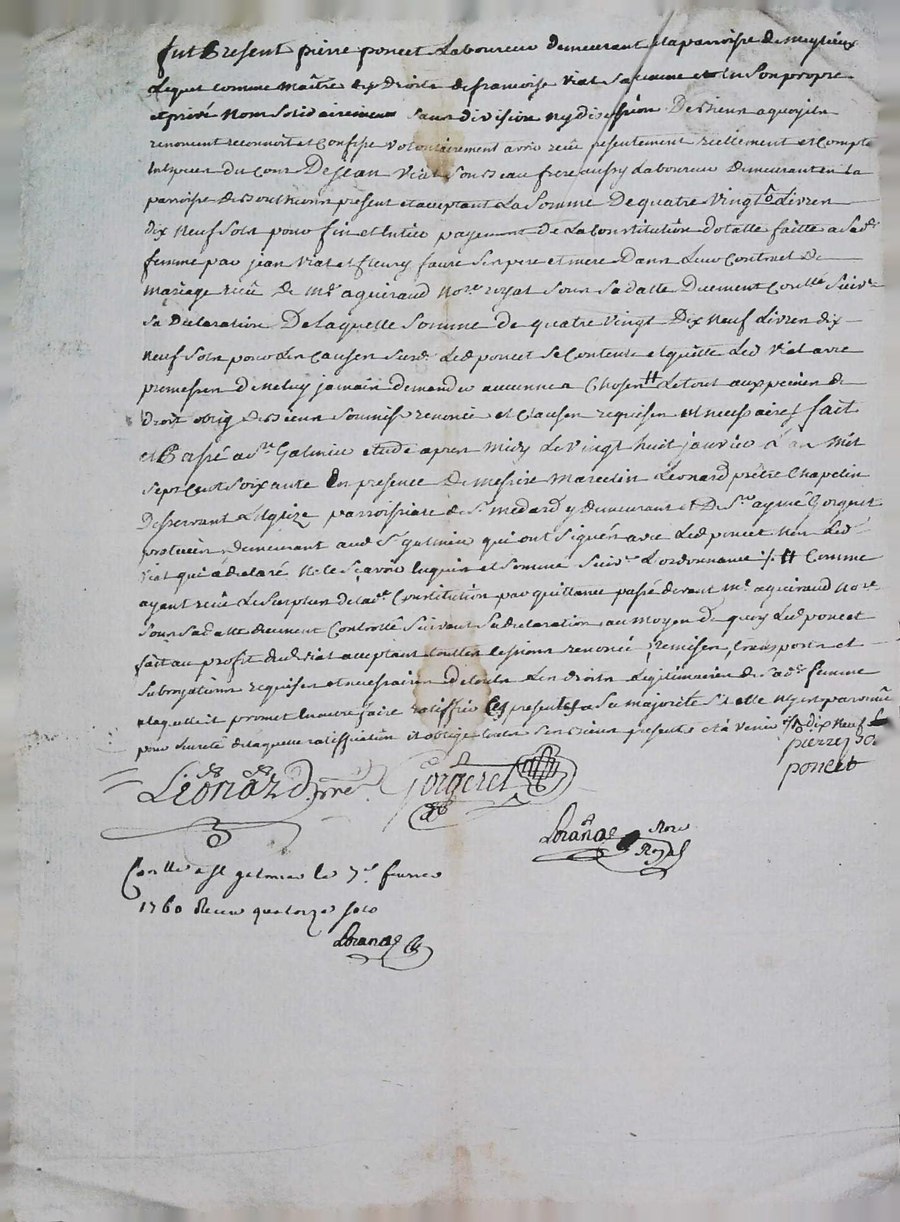 fut Présent pierre poncet Laboureur demeurant en la parroisse de meylieux
Lequel comme maître des Droits de francoise viat sa femme et en Son propre
et privé Nom Solidairement Sans division ny discution De biens a quoy ils
renoncent reconnoit et Confesse volontairement avoir reçu présentement réellement et Compt
De Jean viat Son beau frere aussy Laboureur Demeurant en la
parroisse de present et aceptant La Somme De quatre vingt Livres
dix Neuf Sols pour fin et Entier payement De La Constitution dotalle faitte a Sad.
femme par jean viat et fleury faure Ses pere et mere Dans Leur Contract De
mariage reçu De me. aguiraud Nore royal Sous Sa datte Duement Contllé Suivt
Sa Declaration De laquelle Somme de quatre vingt Dix Neuf Livres dix
Neuf Sols pour Les Causes Susd. Led poncet Se Contente et quitte Led viat avec
promesses de Ne luy jamais demander aucunnes Choses # Le tout aux peines de
Droit oblig De biens Soumiss renoncé et Clauses requises et nessaires fait
et Passé a St. Galmier etude apres midy Le vingt huit janvier L'an mil
Sept Cent Soixante En presence De messire Marcelin Léonard prêtre Chapelin
Desservant L'Eglize parroissiale de St. medard y demeurant et De Sr. aymé Gorgeret
praticien demeurant aud St. galmier qui ont Signés avec Led poncet Non Led
viat qui a déclaré Ne le Sçavoir Enquis et Sommé Suivt. L'ordonnance ./. # Comme
ayant reçu Le Surplus de lad. Constitution par quittance passé devant me. aguiraud Nore.
Sous Sa datte duement Controllé Suivant Sa déclaration, au moyen de quoy Led poncet
fait au profit dud viat aceptant touttes Cessions renoncé, remises, transports et
Subrogations requises et nécessaires de touts Les droits Légitimaires de Sad. femme
a laquelle il promet faire ratiffier Ces presentes a Sa majorité Si elle
pour Sureté de laquelle ratiffication il oblige touts Ses biens presents et à venir dix Neuf
pierre
poncet
Léonard, pre. Gorgeret
Nore
Royal
Contllé a St galmier le 7e. fevrier
1760 Reçu quatorze sols